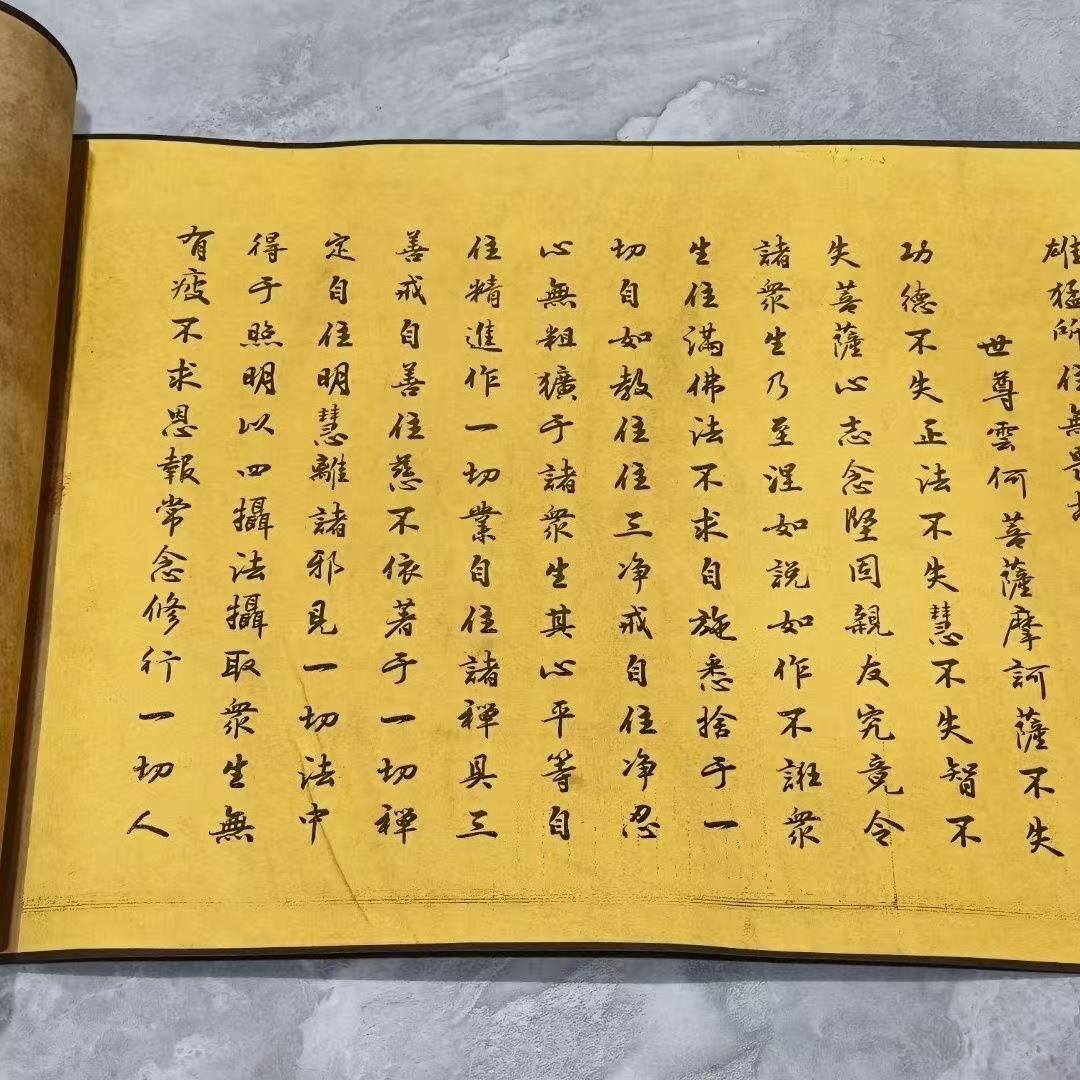 雄猛所住無畏
世尊雲何菩薩摩訶薩不失
功德不失正法不失慧不失智不
失菩薩心志念堅固親友究竟令
諸衆生乃至涅如說如作不誑衆
生住滿佛法不求自施悉捨于一
切自如教住住三净戒自住净忍
心無粗獷于諸衆生其心平等自
住精進作一切業自住諸禪具三
善戒自善住慈不依著于一切禪
定自住明慧離諸邪見一切法中
得于照明以四攝法攝取衆生無
有疲不求恩報常念修行一切人